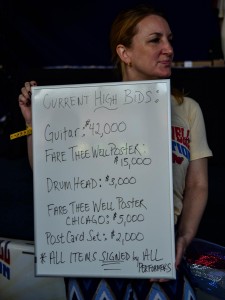 CURRENT HIGH BIDS:
Guitar: $42,000
FARE THEE WELL POSTER:
$15,000
DRUM HEAD: $3,000
FARE THEE WELL POSTER
CHICAGO: $5,000
Post Card Set: $2,000
* ALL ITEMS SIGNED by ALL
PERFORMERS